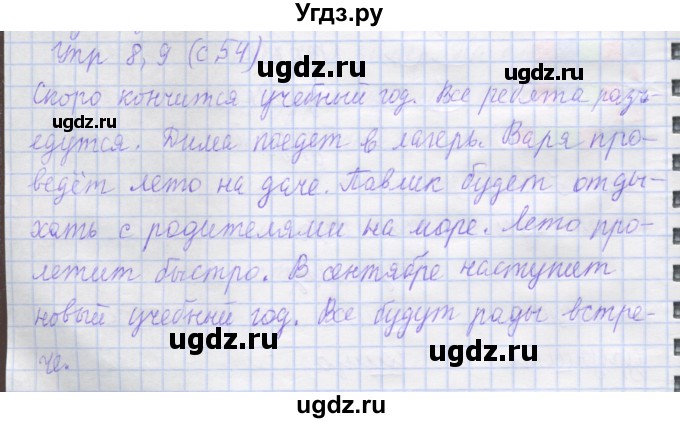 Угдз.ру
Упр 8, 9 (с 54)
ugdz.ru
Скоро кончится учебный год. Все ребята разъ-
ugdz.ru
едутся. Дима поедет в лагерь. Варя про-
ugdz.ru ugdz.ru
ведёт лето на даче. Павлик будет отды-
хать с родителями на море. Лето про-
ugdz.ru
летит быстро. В сентябре наступит
ugdz.ru
новый учебный год. Все будут рады встре-
ugdz.ru ugdz.ru
че.
ugdz.ru